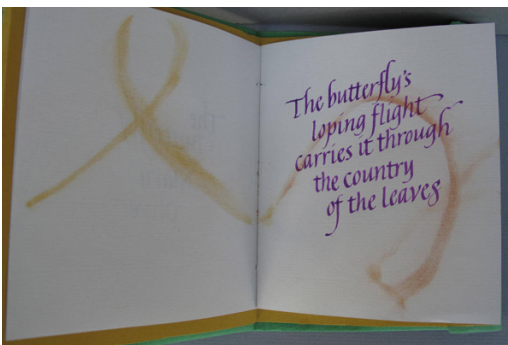 The butterfly's
loping flight
carries it through
the country
of the leaves